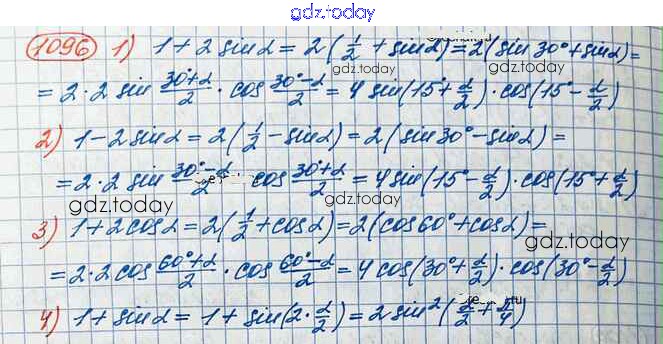 gdz.today
1096 1) 1 + 2 sin α = 2(1/2 + sin α) = 2(sin 30° + sin α) =
gdz.today
= 2 · 2 sin (30° + α)/2 · cos (30° - α)/2 = 4 sin(15° + α/2) · cos(15° - α/2)
gdz.today
2) 1 - 2 sin α = 2(1/2 - sin α) = 2(sin 30° - sin α) =
= 2 · 2 sin (30° - α)/2 · cos (30° + α)/2 = 4 sin(15° - α/2) · cos(15° + α/2)
gdz.today
3) 1 + 2 cos α = 2(1/2 + cos α) = 2(cos 60° + cos α) =
gdz.today
= 2 · 2 cos (60° + α)/2 · cos (60° - α)/2 = 4 cos(30° + α/2) · cos(30° - α/2)
4) 1 + sin α = 1 + sin(2 · α/2) = 2 sin²(α/2 + π/4)